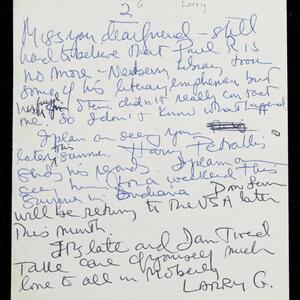 2
G Larry
Miss you dear friend - still
hard to believe that Paul R is
no more - Newberry Library took
some of his literary ephemera but
his Stein didn't really contact
me. So I don't know what happened
I plan on seeing you
this
later summer. Harry Petrakis
sends his regards. I plan on
seeing him for a weekend this
summer in Indiana Don
will be returning to the USA later
this month.
It's late and I am Tired
Take care of yourself much
love to all in Moberly
LARRY G.